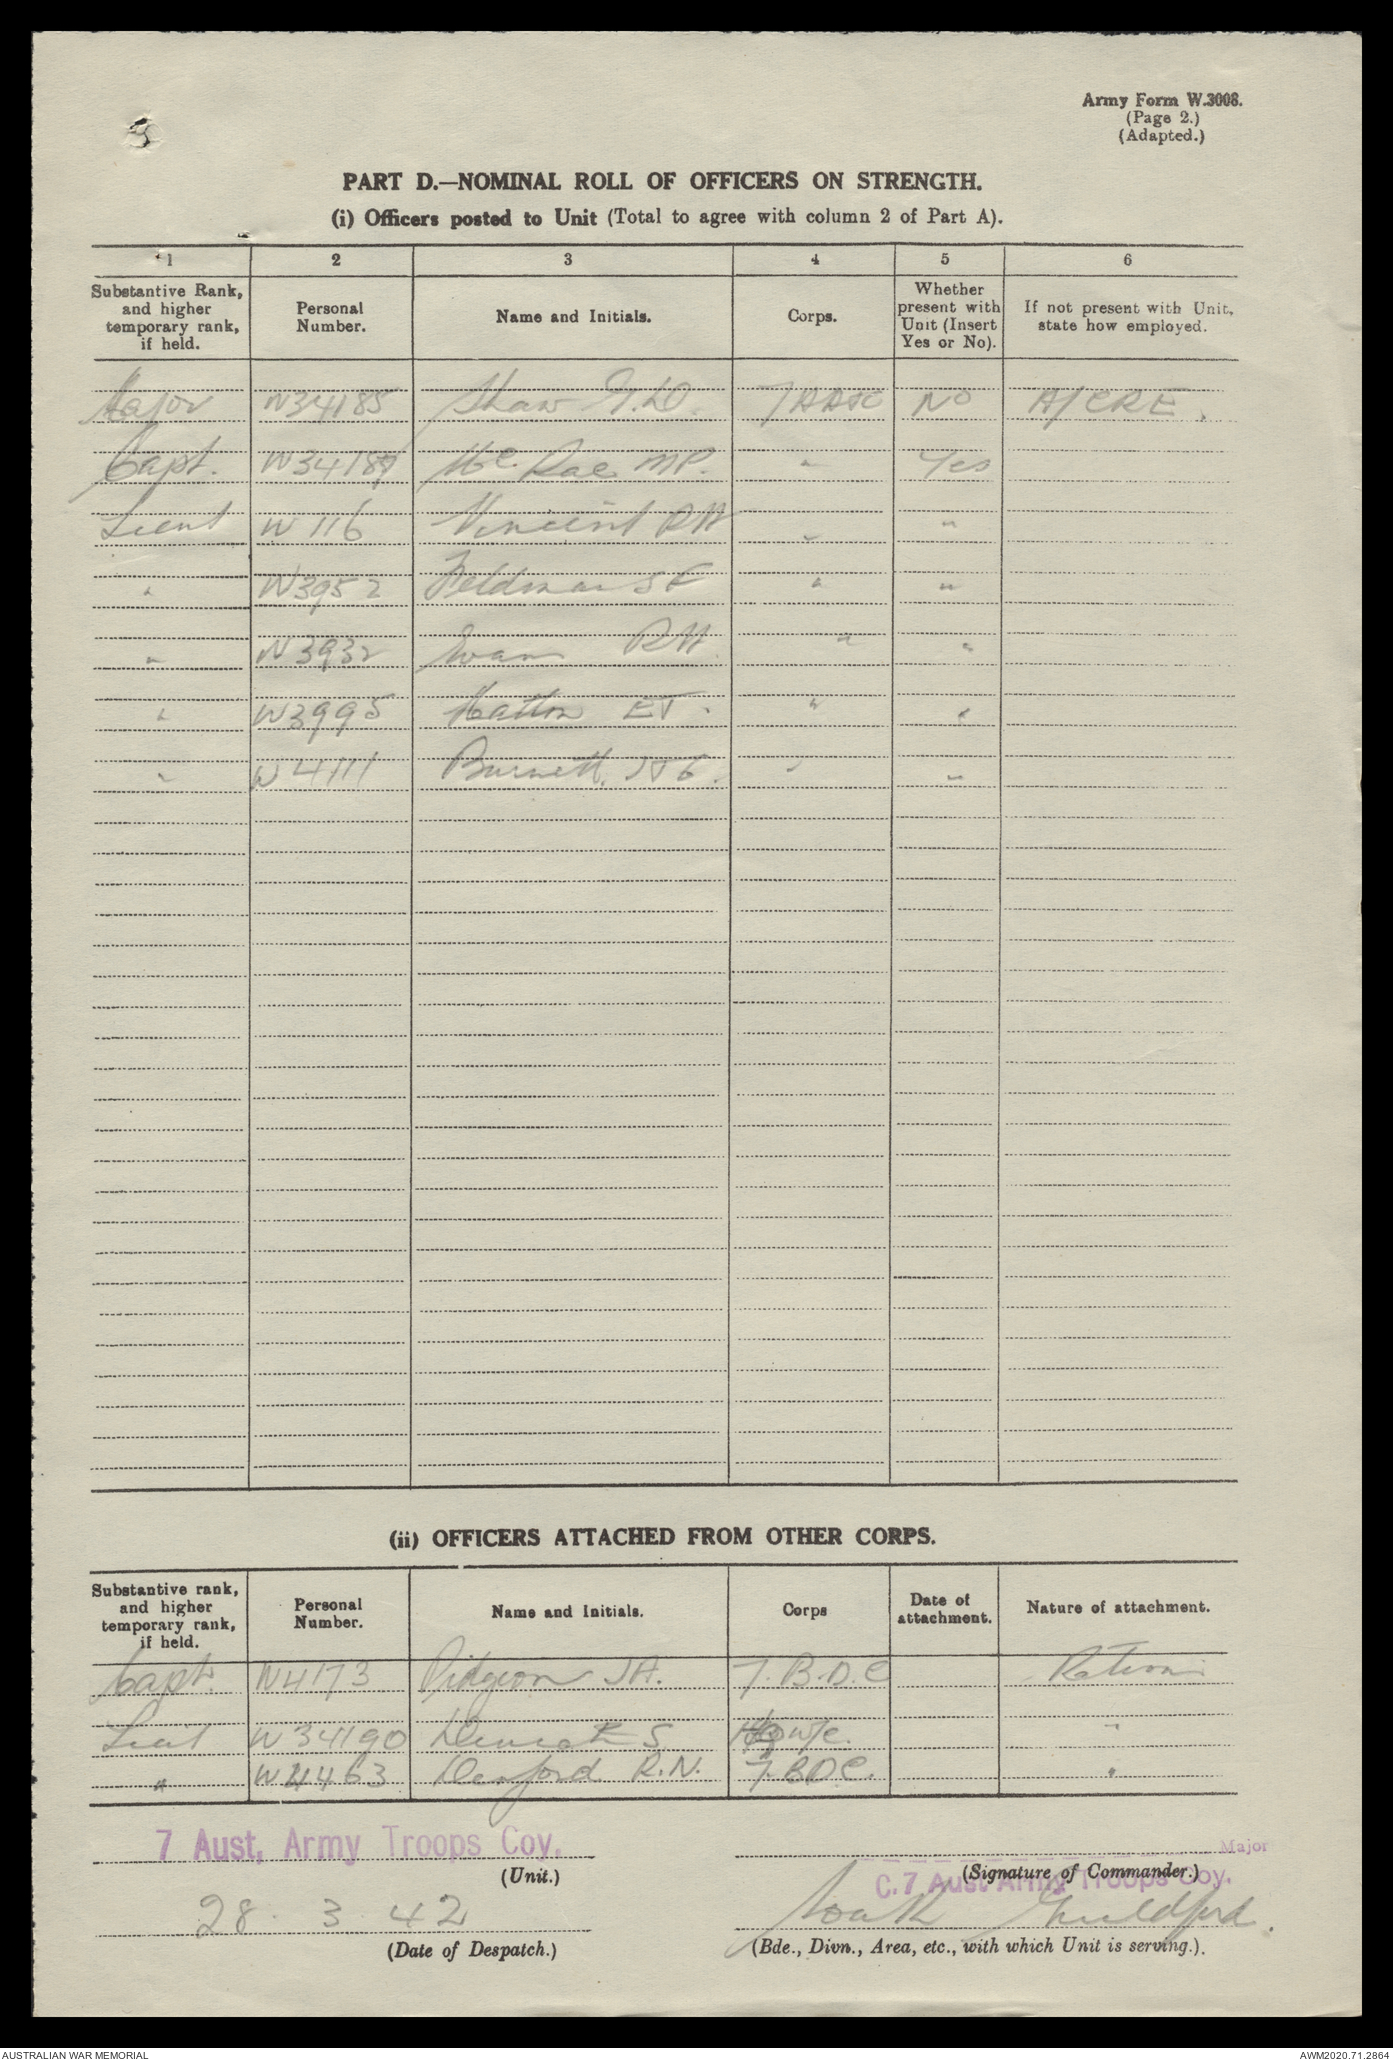 Army Form W.3008.
(Page 2.)
(Adapted.)
PART D.—NOMINAL ROLL OF OFFICERS ON STRENGTH.
(i) Officers posted to Unit (Total to agree with column 2 of Part A).
1 2 3 4 5 6
Substantive Rank, and higher temporary rank, if held. Personal Number. Name and Initials. Corps. Whether present with Unit (Insert Yes or No). If not present with Unit, state how employed.
Major W34185 Shaw G.D. No A/CRE.
Capt. Mc.Rae MP. " Yes
Lieut W116 Vincent RH " "
" W3952 Feldman S E " "
" W3932 Evans RH " "
" W3995 Hatton ET. " "
" W4111 Burnett " "
(ii) OFFICERS ATTACHED FROM OTHER CORPS.
Substantive rank, and higher temporary rank, if held. Personal Number. Name and Initials. Corps Date of attachment. Nature of attachment.
Capt. W4173 Pidgeon JA. 7.B.D.C Rations
Lieut W34190 "
" W4463 R.N. 7.BDC. "
7 Aust. Army Troops Coy.
(Unit.)
Major
(Signature of Commander.)
C. 7 Aust Army Troops Coy.
28. 3 42
(Date of Despatch.)
South Guildford.
(Bde., Divn., Area, etc., with which Unit is serving.).
AUSTRALIAN WAR MEMORIAL
AWM2020.71.2864